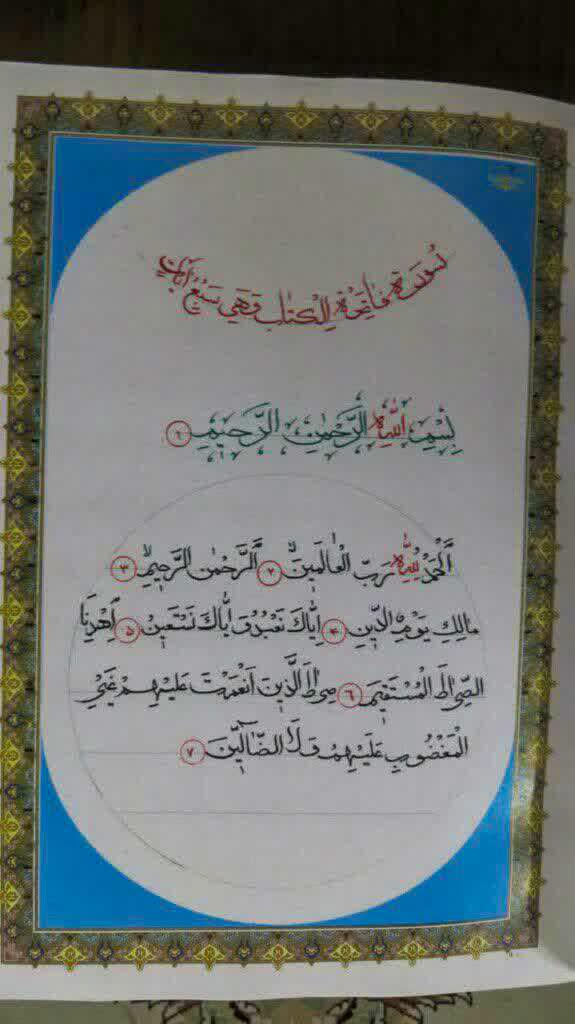 سُورَة فَاتِحَة الْكِتَابِ وَهِيَ سَبْعُ آيَاتٍ
بِسْمِ اللَّهِ الرَّحْمٰنِ الرَّحِيمِ ۱
اَلْحَمْدُ لِلَّهِ رَبِّ الْعَالَمِينَ ۲ اَلرَّحْمٰنِ الرَّحِيمِ ۳
مَالِكِ يَوْمِ الدِّينِ ۴ اِيَّاكَ نَعْبُدُ وَ اِيَّاكَ نَسْتَعِينُ ۵ اِهْدِنَا
الصِّرَاطَ الْمُسْتَقِيمَ ۶ صِرَاطَ الَّذِينَ اَنْعَمْتَ عَلَيْهِمْ غَيْرِ
الْمَغْضُوبِ عَلَيْهِمْ وَلَا الضَّالِّينَ ۷